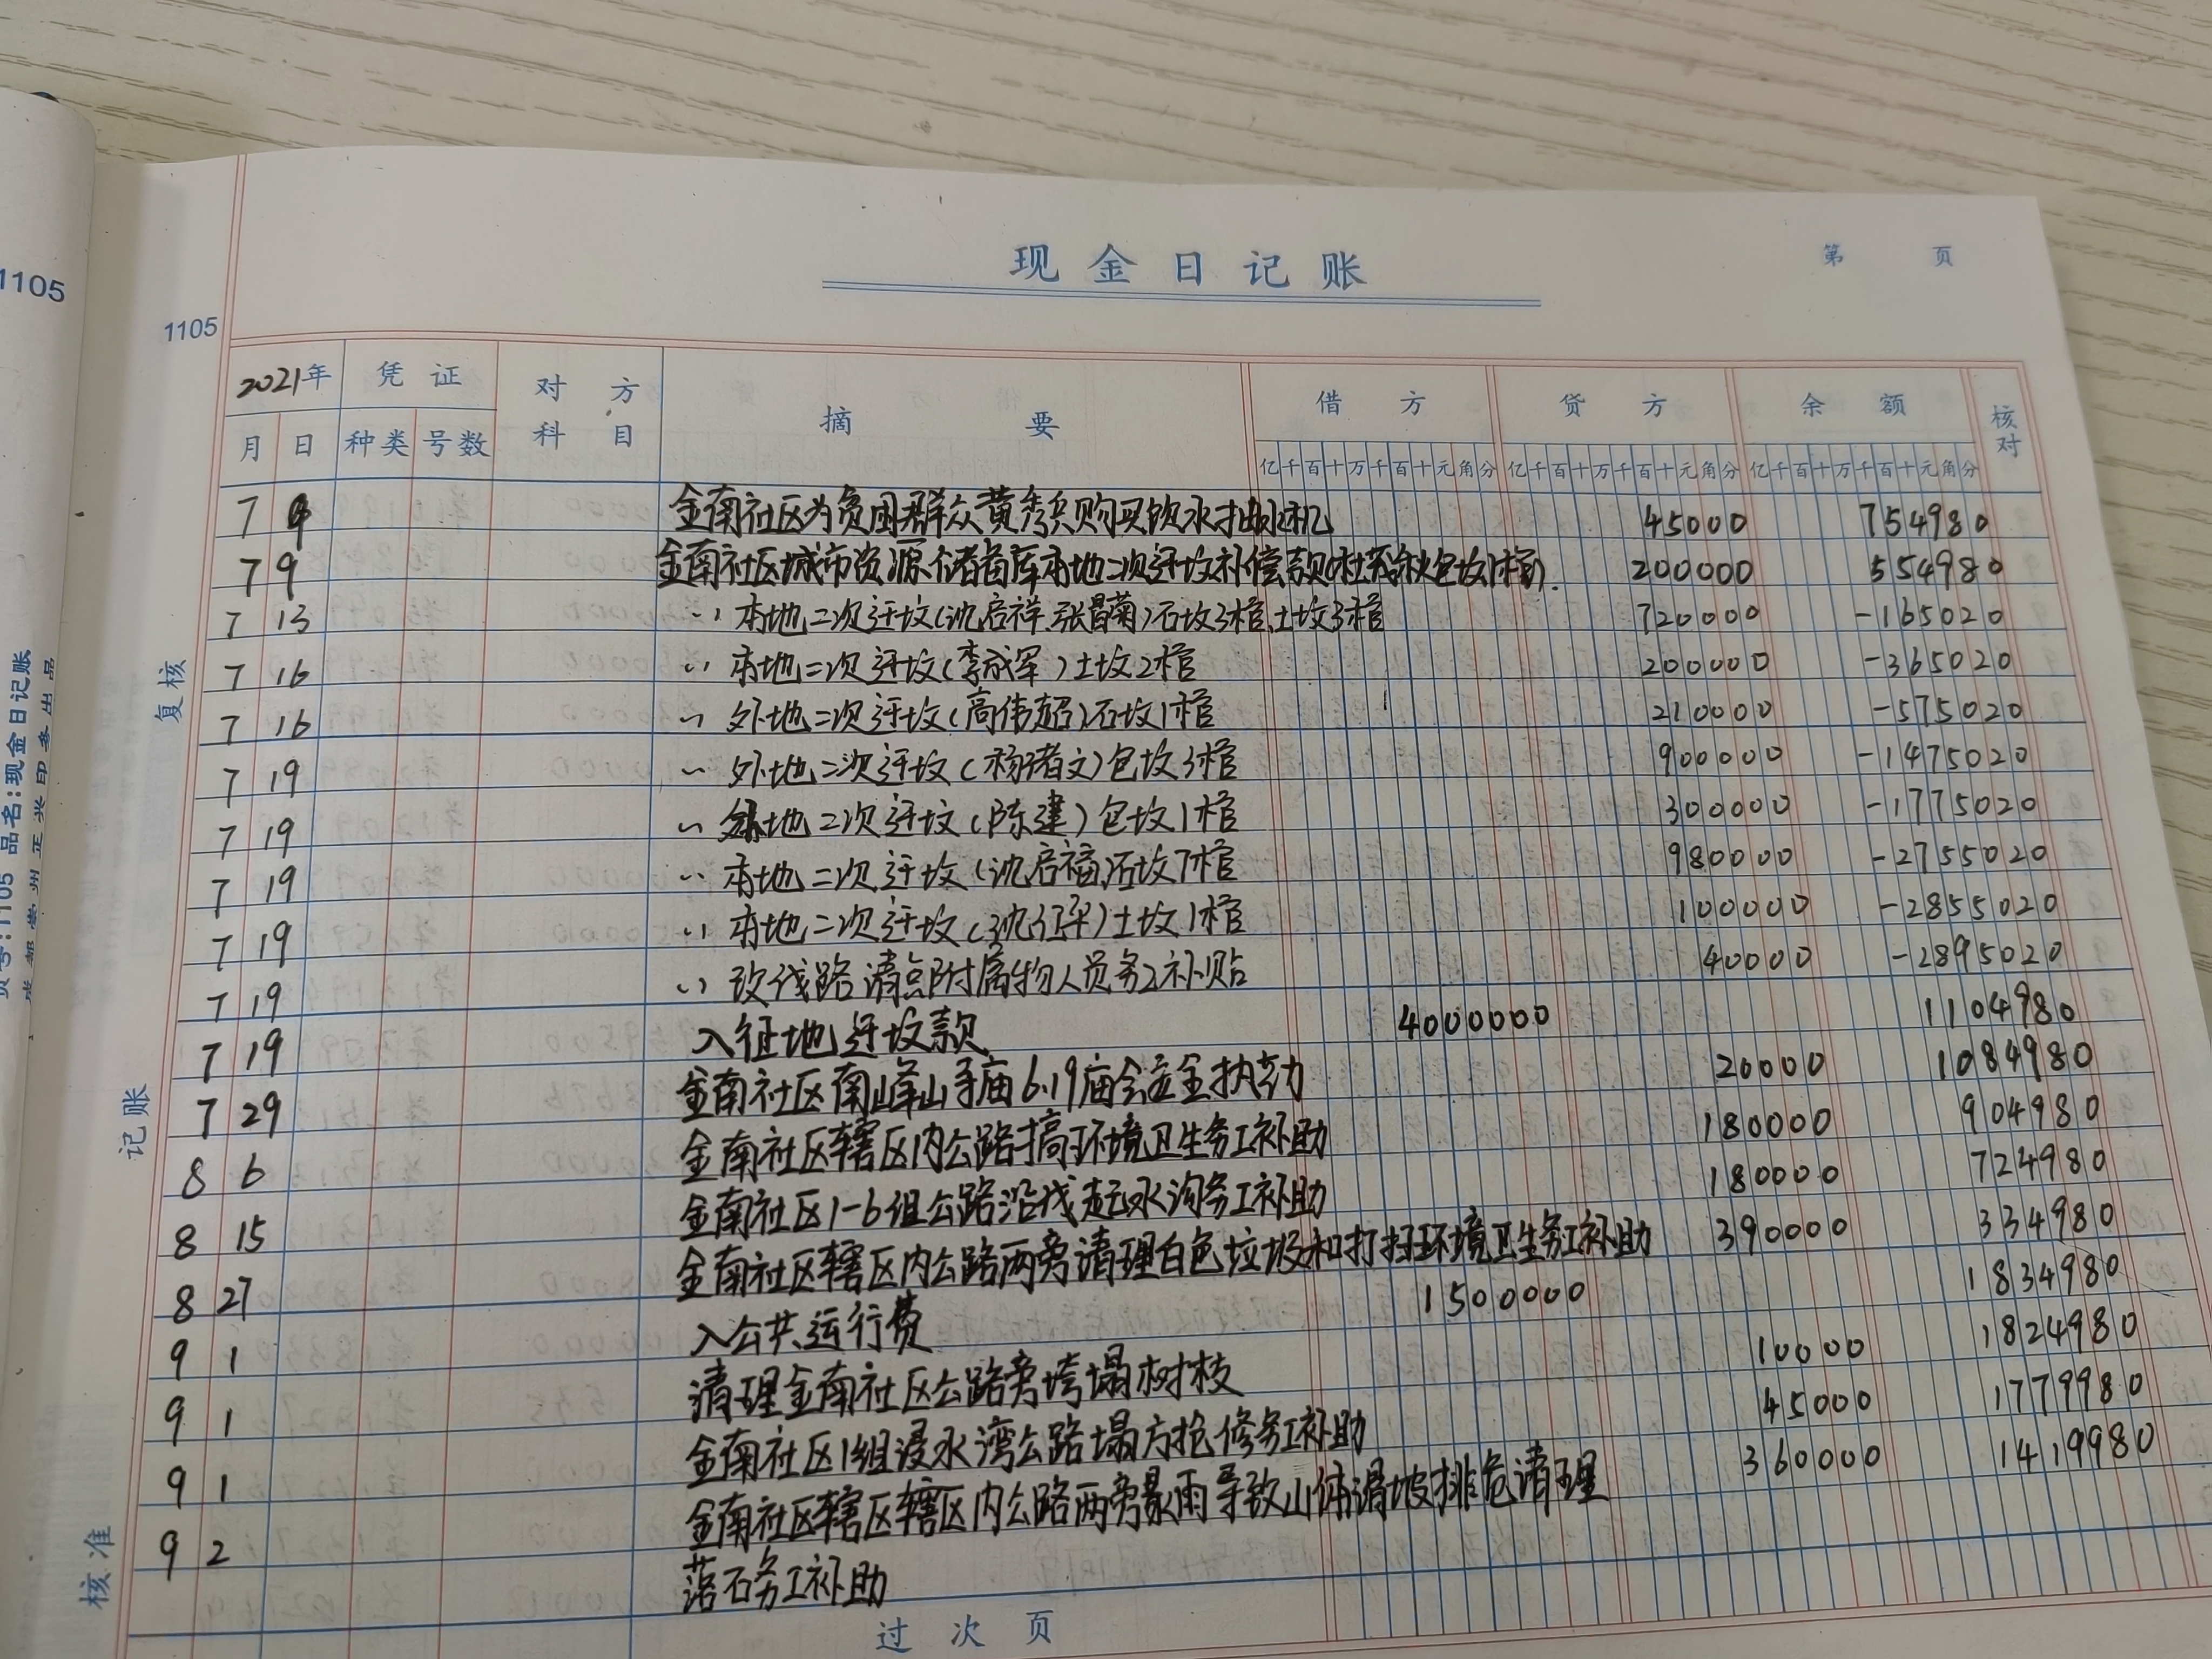 现金日记账
第 页
1105
1105
2021年 凭证 对方科目 摘要 借方 贷方 余额 核对
月 日 种类 号数 亿千百十万千百十元角分 亿千百十万千百十元角分 亿千百十万千百十元角分
7 9 金南社区为贫困群众黄秀兵购买饮水抽水机 45000 754980
7 9 金南社区城市资源储备库本地二次迁坟补偿款 200000 554980
7 13 〃 本地二次迁坟(沈启祥、张昌菊)石坟3棺、土坟3棺 720000 -165020
7 16 〃 本地二次迁坟(李成军)土坟2棺 200000 -365020
7 16 〃 外地二次迁坟(高伟超)石坟1棺 210000 -575020
7 19 〃 外地二次迁坟(杨绪文)包坟3棺 900000 -1475020
7 19 〃 外地二次迁坟(陈建)包坟1棺 300000 -1775020
7 19 〃 本地二次迁坟(沈启福)石坟7棺 980000 -2755020
7 19 〃 本地二次迁坟(沈)土坟1棺 100000 -2855020
7 19 〃 改线路清点附属物人员务工补贴 40000 -2895020
7 19 入征地迁坟款 4000000 1104980
7 29 金南社区南峰山寺庙6.19庙会安全执勤 20000 1084980
8 6 金南社区辖区内公路搞环境卫生务工补助 180000 904980
8 15 金南社区1-6组公路沿线赶水沟务工补助 180000 724980
8 27 金南社区辖区内公路两旁清理白色垃圾和打扫环境卫生务工补助 390000 334980
9 1 入公共运行费 1500000 1834980
9 1 清理金南社区公路旁垮塌树枝 10000 1824980
9 1 金南社区1组浸水湾公路塌方抢修务工补助 45000 1779980
9 2 金南社区辖区辖区内公路两旁暴雨导致山体滑坡排危清理 360000 1419980
落石务工补助
过次页
复核
记账
核准
品名:现金日记账